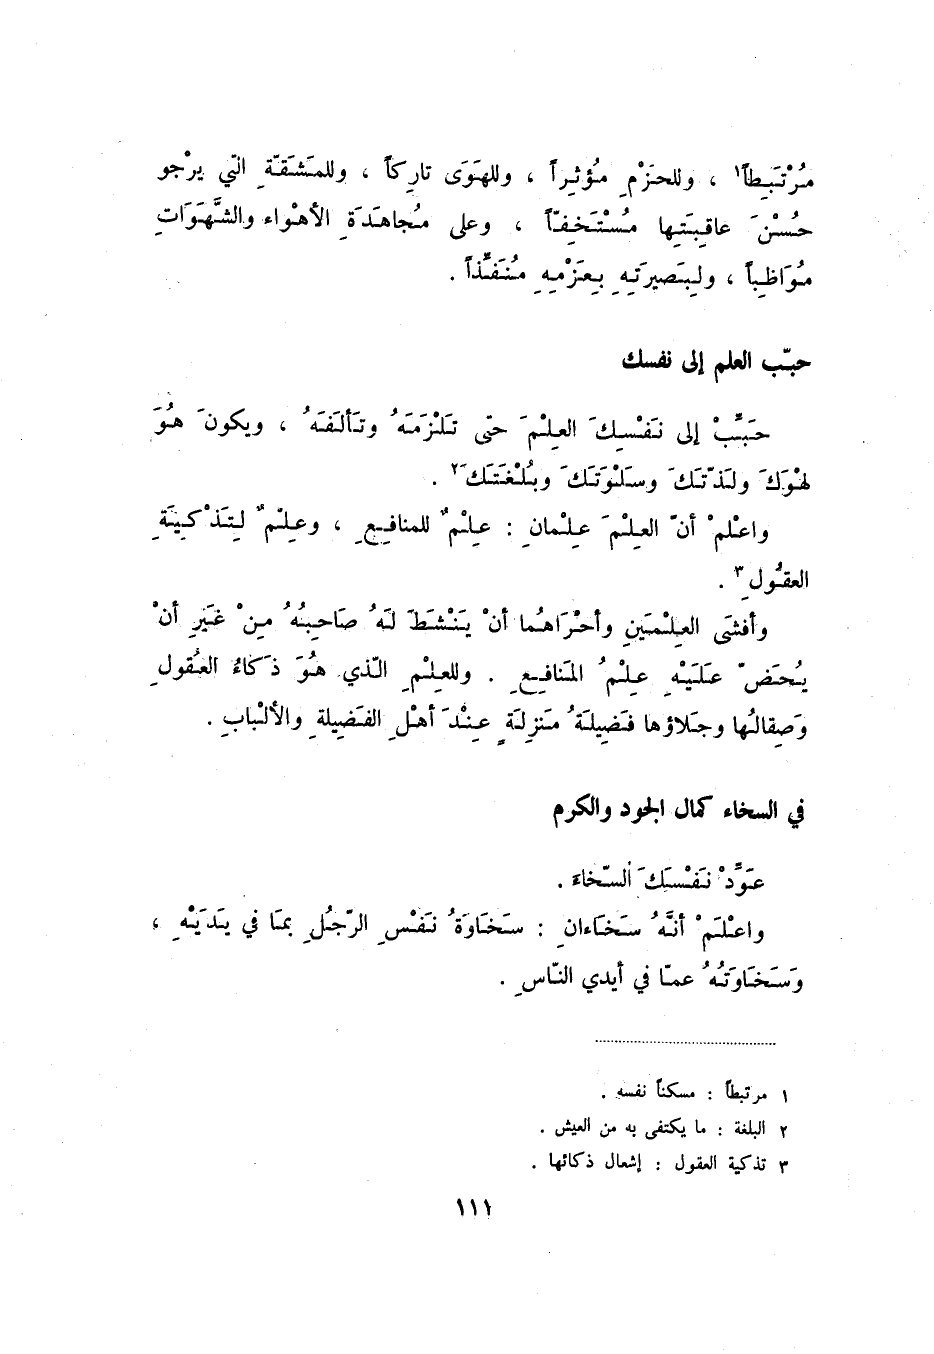 مُرْتَبِطاً١ ، وللحَزْمِ مُؤثِراً ، وللهَوَى تارِكاً ، وللمَشَقَّةِ التّي يرْجو
حُسْنَ عاقِبَتِها مُسْتَخِفّاً ، وعلى مُجاهَدَةِ الأهْواء والشَّهَوَاتِ
مُوَاظِباً ، ولِبَصيرَتِهِ بِعَزْمِهِ مُنَفِّذاً .
حبّب العلم إلى نفسك
حَبِّبْ إلى نَفْسِكَ العِلْمَ حتّى تَلْزَمَهُ وتَألَفَهُ ، ويكونَ هُوَ
لهْوَكَ ولَذّتَكَ وسَلْوَتَكَ وبُلْغَتَكَ٢ .
واعْلمْ أنّ العِلْمَ عِلْمانِ : عِلْمٌ للمنافِعِ ، وعِلْمٌ لِتَذْكِيَةِ
العقُولِ٣ .
وأفشَى العِلْمَينِ وأحْرَاهُما أنْ يَنْشَطَ لَهُ صَاحِبُهُ مِنْ غَيرِ أنْ
يُحَضّ عَلَيْهِ عِلْمُ المَنافِعِ . وللعِلْمِ الّذي هُوَ ذَكاءُ العُقولِ
وَصِقالُها وجَلاؤها فَضِيلَةُ مَنزِلَةٍ عِنْدَ أهْلِ الفَضِيلةِ والألْبابِ .
في السخاء كمال الجود والكرم
عَوِّدْ نَفْسَكَ السّخاءَ .
واعْلَمْ أنّهُ سَخَاءانِ : سَخَاوَةُ نَفْسِ الرّجُلِ بمَا في يَدَيْهِ ،
وَسَخَاوَتُهُ عمّا في أيدي النّاسِ .
١ مرتبطاً : مسكناً نفسه .
٢ البلغة : ما يكتفى به من العيش .
٣ تذكية العقول : إشعال ذكائها .
١١١